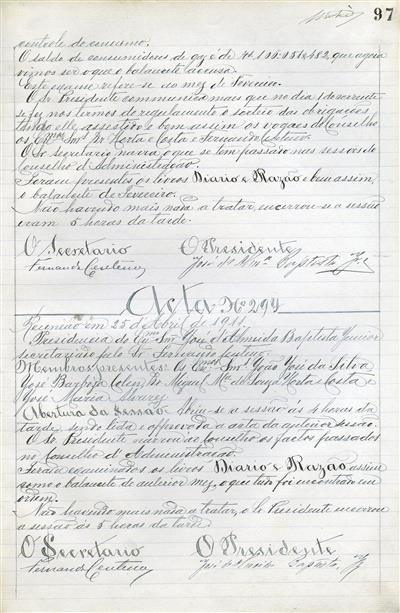 97
controle do consumo.
O saldo de consumidores de gaz é de
viemos ser o que o balancete accusa.
Este exame refere-se ao mez de Fevereiro.
O Sr. Presidente communica mais que no dia 1 do corrente
se fez nos termos do regulamento o sorteio das obrigações
tendo elle assistido e bem assim os vogaes do Conselho
os Exmos Snrs. Horta e Costa e Fernando Centeno.
O Sr. Secretario narra o que se tem passado nas sessões do
Conselho d'Administração.
Foram presentes os livros Diario e Razão e bem assim,
o balancete de Fevereiro.
Não havendo mais nada a tratar, encerrou-se a sessão
eram 5 horas da tarde.
O Secretario O Presidente
Fernando Centeno José d'Alm.ª Baptista Jr
Acta Nº 294
Reunião em 25 d'Abril de 1911
Presidencia do Exmo Snr. José d'Almeida Baptista Junior
secretariado pelo Sr. Fernando Centeno
Membros presentes: Os Exmos Snrs. João José da Silva
José Barbosa Colen, Miguel M. de Souza Horta e Costa e
José Maria Alvarez
Abertura da Sessão: Abriu-se a sessão ás 4 horas da
tarde, sendo lida e approvada a acta da anterior sessão.
O Sr. Presidente narrou ao Conselho os factos passados
no Conselho d'Administração.
Foram examinados os livros Diario e Razão assim
como o balancete do anterior mez, o que tudo foi encontrado em
ordem.
Não havendo mais nada a tratar, o Sr. Presidente encerrou
a sessão ás 5 horas da tarde
O Secretario O Presidente
Fernando Centeno José d'Almeida Baptista Jr